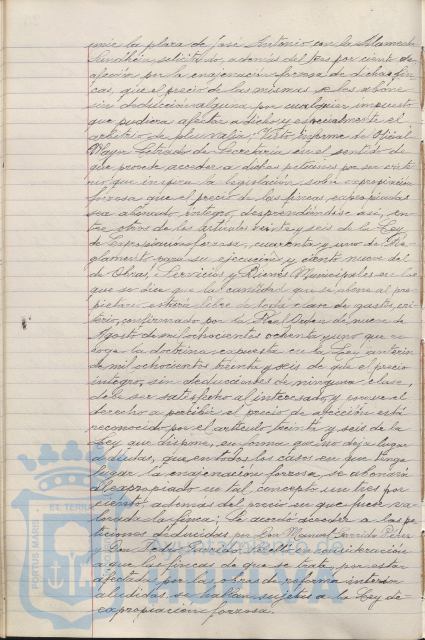 unir la plaza de José Antonio con la Alameda
Sundheim, solicitado, además del tres por ciento de
afección por la enajenación forzosa de dichas fin-
cas, que el precio de las mismas se les abone
sin deducción alguna por cualquier impuesto
que pudiera afectar a dicho y especialmente el
arbitrio de plusvalía; Visto informe de Oficial
Mayor Letrado de Secretaría en el sentido de
que procede acceder a dichas peticiones por ser crite-
rio que inspira la legislación sobre expropiación
forzosa que el precio de las fincas expropiadas
sea abonado íntegro, desprendiéndose así, en-
tre otros de los artículos veinte y seis de la Ley
de Expropiación forzosa, cuarenta y uno de Re-
glamento para su ejecución y ciento nueve del
de Obras, Servicios y Bienes Municipales en los
que se dice que la cantidad que se abone al pro-
pietario estará libre de toda clase de gastos, cri-
terio, confirmado por la Real Orden de nueve de
Agosto de mil ochocientos ochenta y uno que
la doctrina expuesta en la Ley anterior
de mil ochocientos treinta y seis de que el precio
íntegro, sin deducciones de ninguna clase,
debe ser satisfecho al interesado, y que el
derecho a percibir el precio de afección está
reconocido por el artículo treinta y seis de la
Ley que dispone, en forma que no deja lugar
a dudas, que en todos los casos en que tenga
lugar la enajenación forzosa, se abonará
al expropiado en tal concepto un tres por
ciento, además del precio en que fuese va-
lorada la finca; Se acordó acceder a las pe-
ticiones deducidas por Don Manuel Garrido Perez
y Don Garrido en consideración
a que las fincas de que se trata, por estar
afectadas por las obras de reforma interior
aludidas se hallan sujetas a la Ley de
expropiación forzosa.
PORTUS MARIS
ET TERRAE
HUELVA